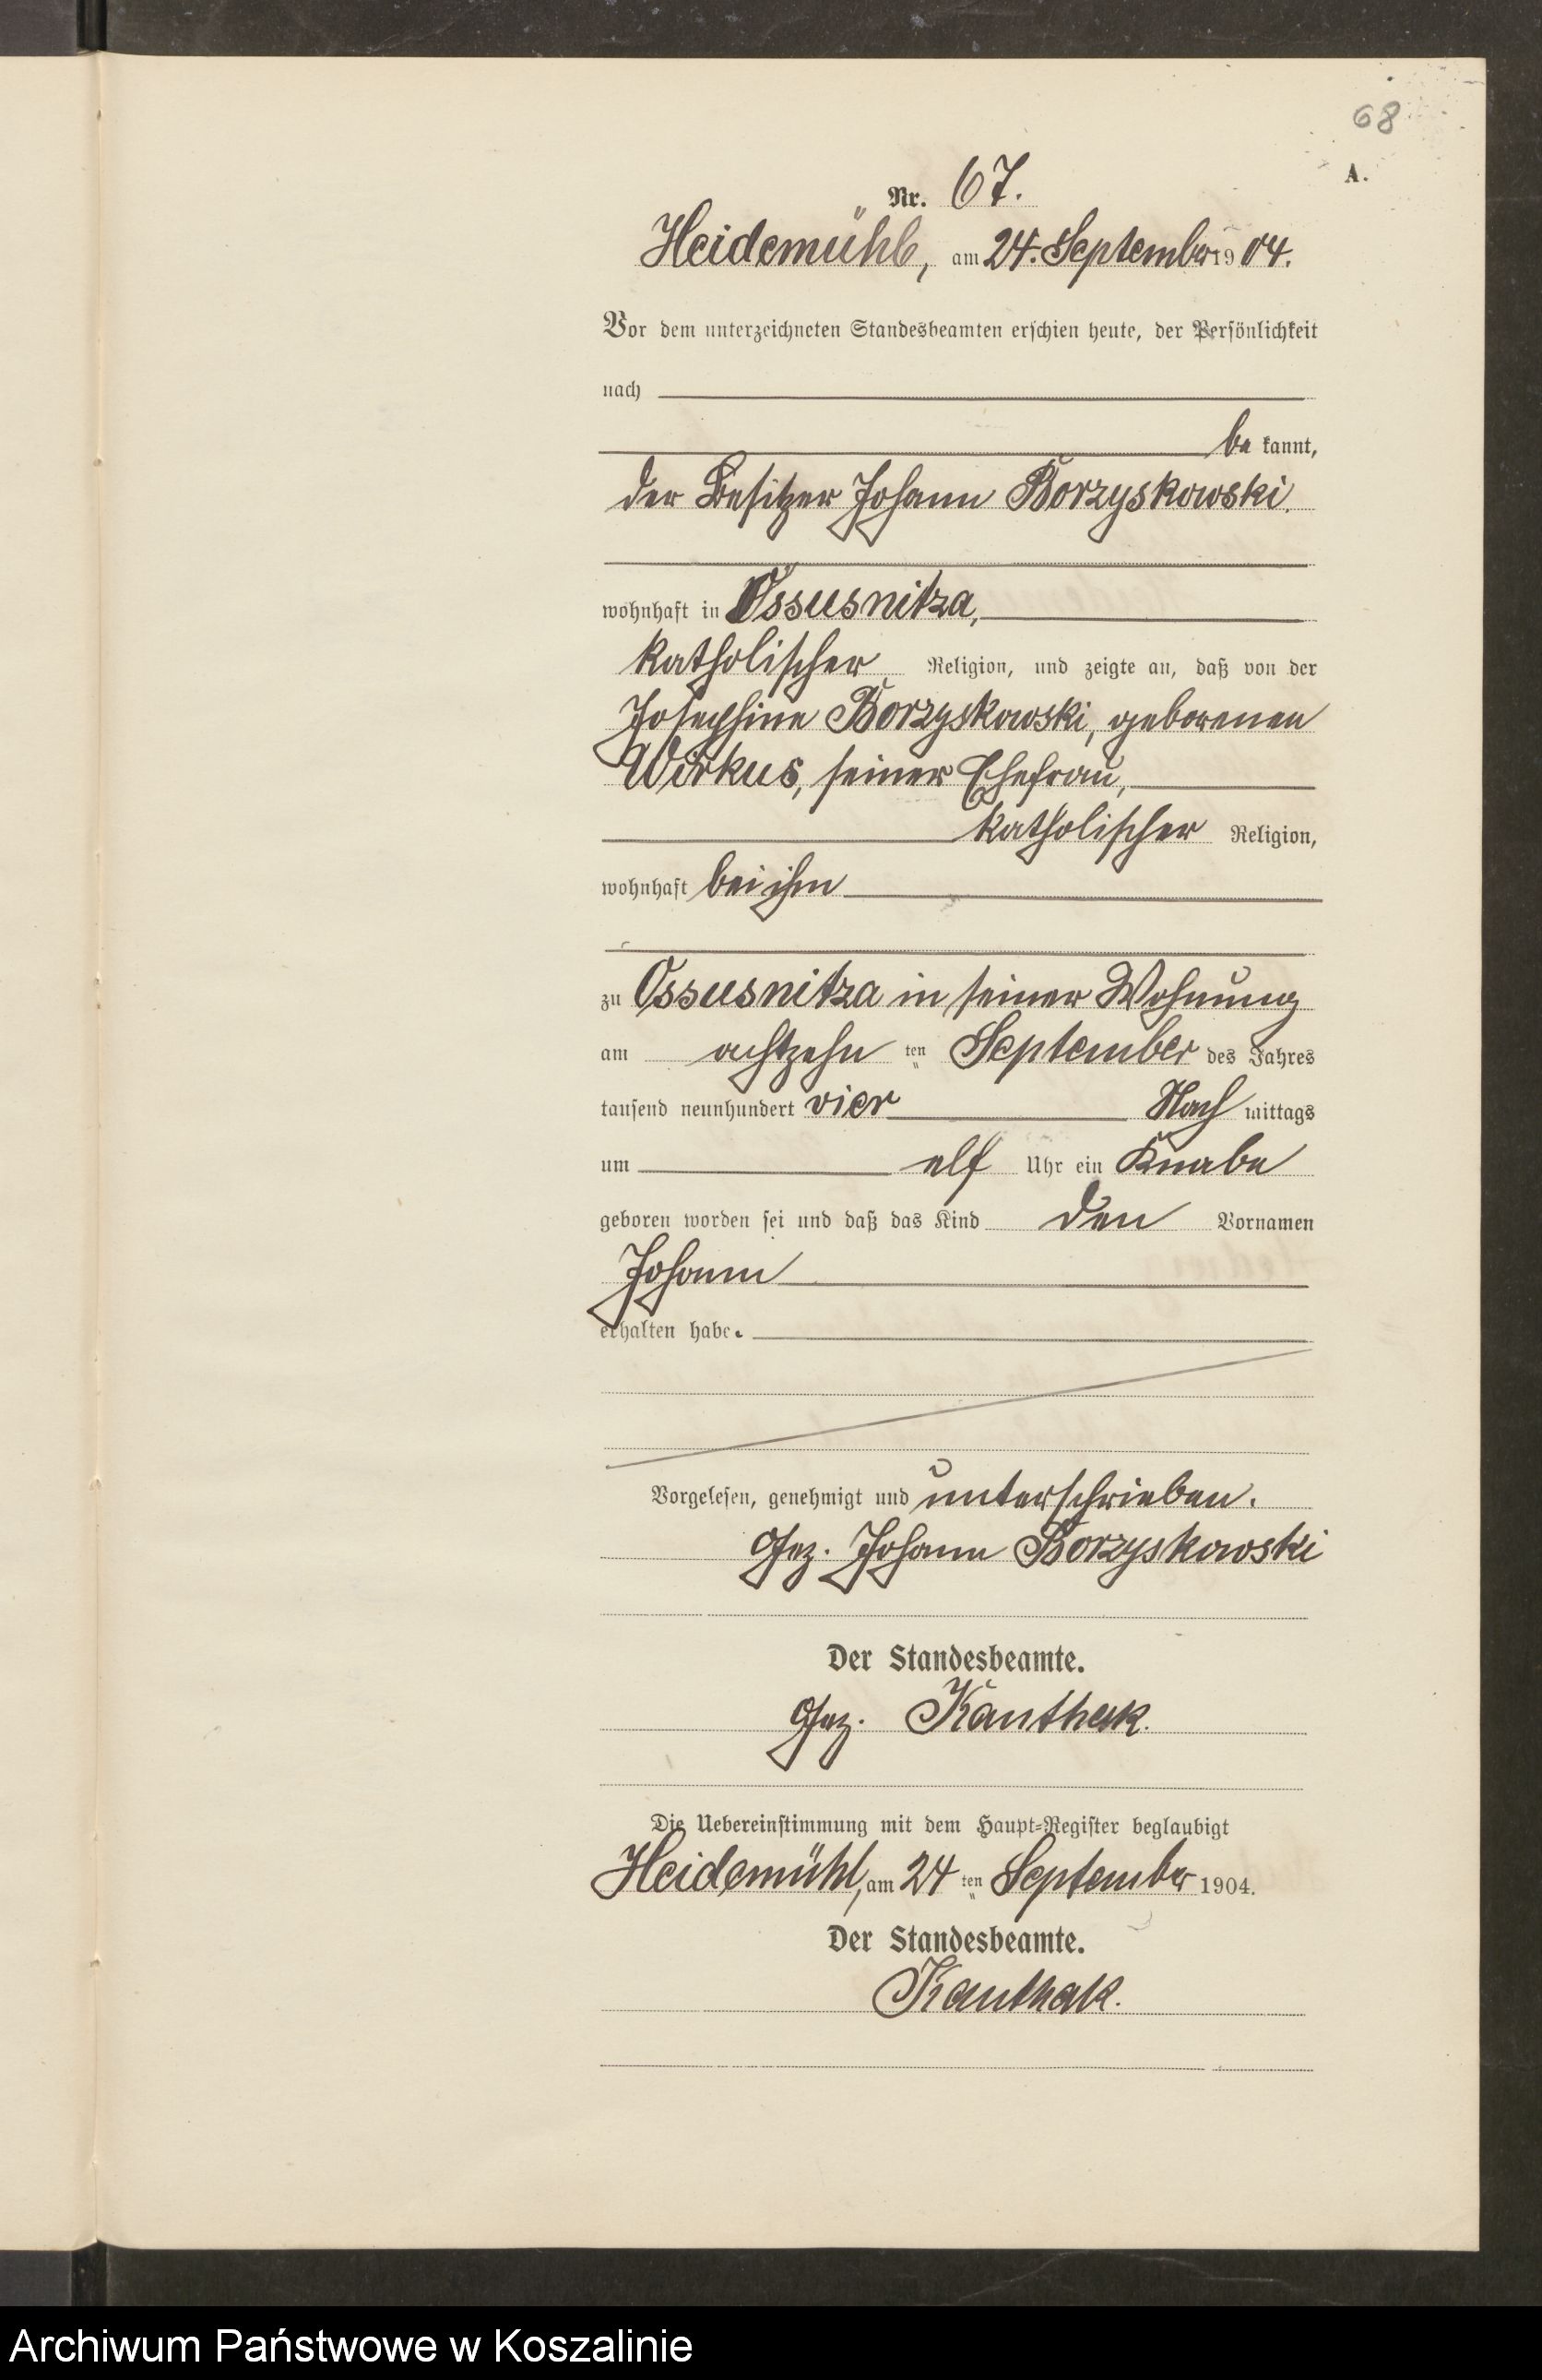 68
A.
Nr. 67.
Heidemühl, am 24. September 1904.
Vor dem unterzeichneten Standesbeamten erschien heute, der Persönlichkeit
nach
be kannt,
der Besitzer Johann Borzyskowski.
wohnhaft in Ossusnitza,
katholischer Religion, und zeigte an, daß von der
Josephine Borzyskowski, geborenen
Wirkus, seiner Ehefrau,
katholischer Religion,
wohnhaft bei ihm
zu Ossusnitza in seiner Wohnung
am achtzehn ten September des Jahres
tausend neunhundert vier Nach mittags
um elf Uhr ein Knabe
geboren worden sei und daß das Kind den Vornamen
Johann
erhalten habe.
Vorgelesen, genehmigt und unterschrieben.
Gez. Johann Borzyskowski
Der Standesbeamte.
Gez. Kanthak.
Die Uebereinstimmung mit dem Haupt-Register beglaubigt
Heidemühl, am 24 ten September 1904.
Der Standesbeamte.
Kanthak.
Archiwum Państwowe w Koszalinie